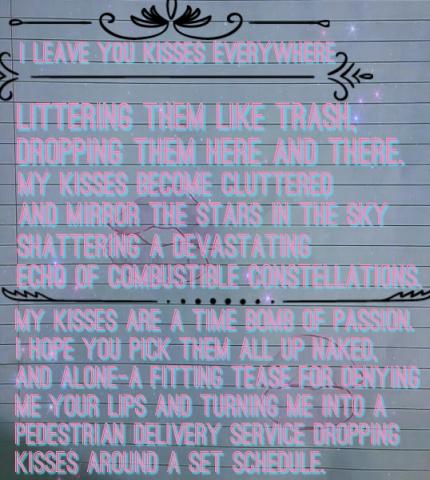 I LEAVE YOU KISSES EVERYWHERE
LITTERING THEM LIKE TRASH,
DROPPING THEM HERE AND THERE.
MY KISSES BECOME CLUTTERED
AND MIRROR THE STARS IN THE SKY
SHATTERING A DEVASTATING
ECHO OF COMBUSTIBLE CONSTELLATIONS.
MY KISSES ARE A TIME BOMB OF PASSION.
I HOPE YOU PICK THEM ALL UP NAKED,
AND ALONE-A FITTING TEASE FOR DENYING
ME YOUR LIPS AND TURNING ME INTO A
PEDESTRIAN DELIVERY SERVICE DROPPING
KISSES AROUND A SET SCHEDULE.